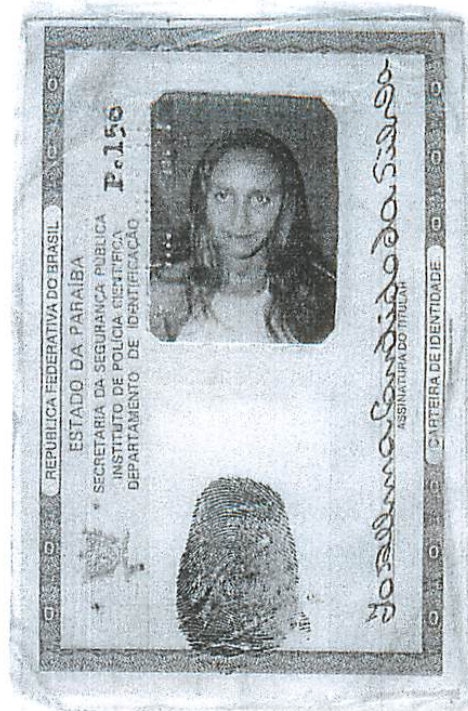 REPÚBLICA FEDERATIVA DO BRASIL
ESTADO DA PARAÍBA
SECRETARIA DA SEGURANÇA PÚBLICA
INSTITUTO DE POLÍCIA CIENTÍFICA
DEPARTAMENTO DE IDENTIFICAÇÃO
P.150
da Silva
ASSINATURA DO TITULAR
CARTEIRA DE IDENTIDADE